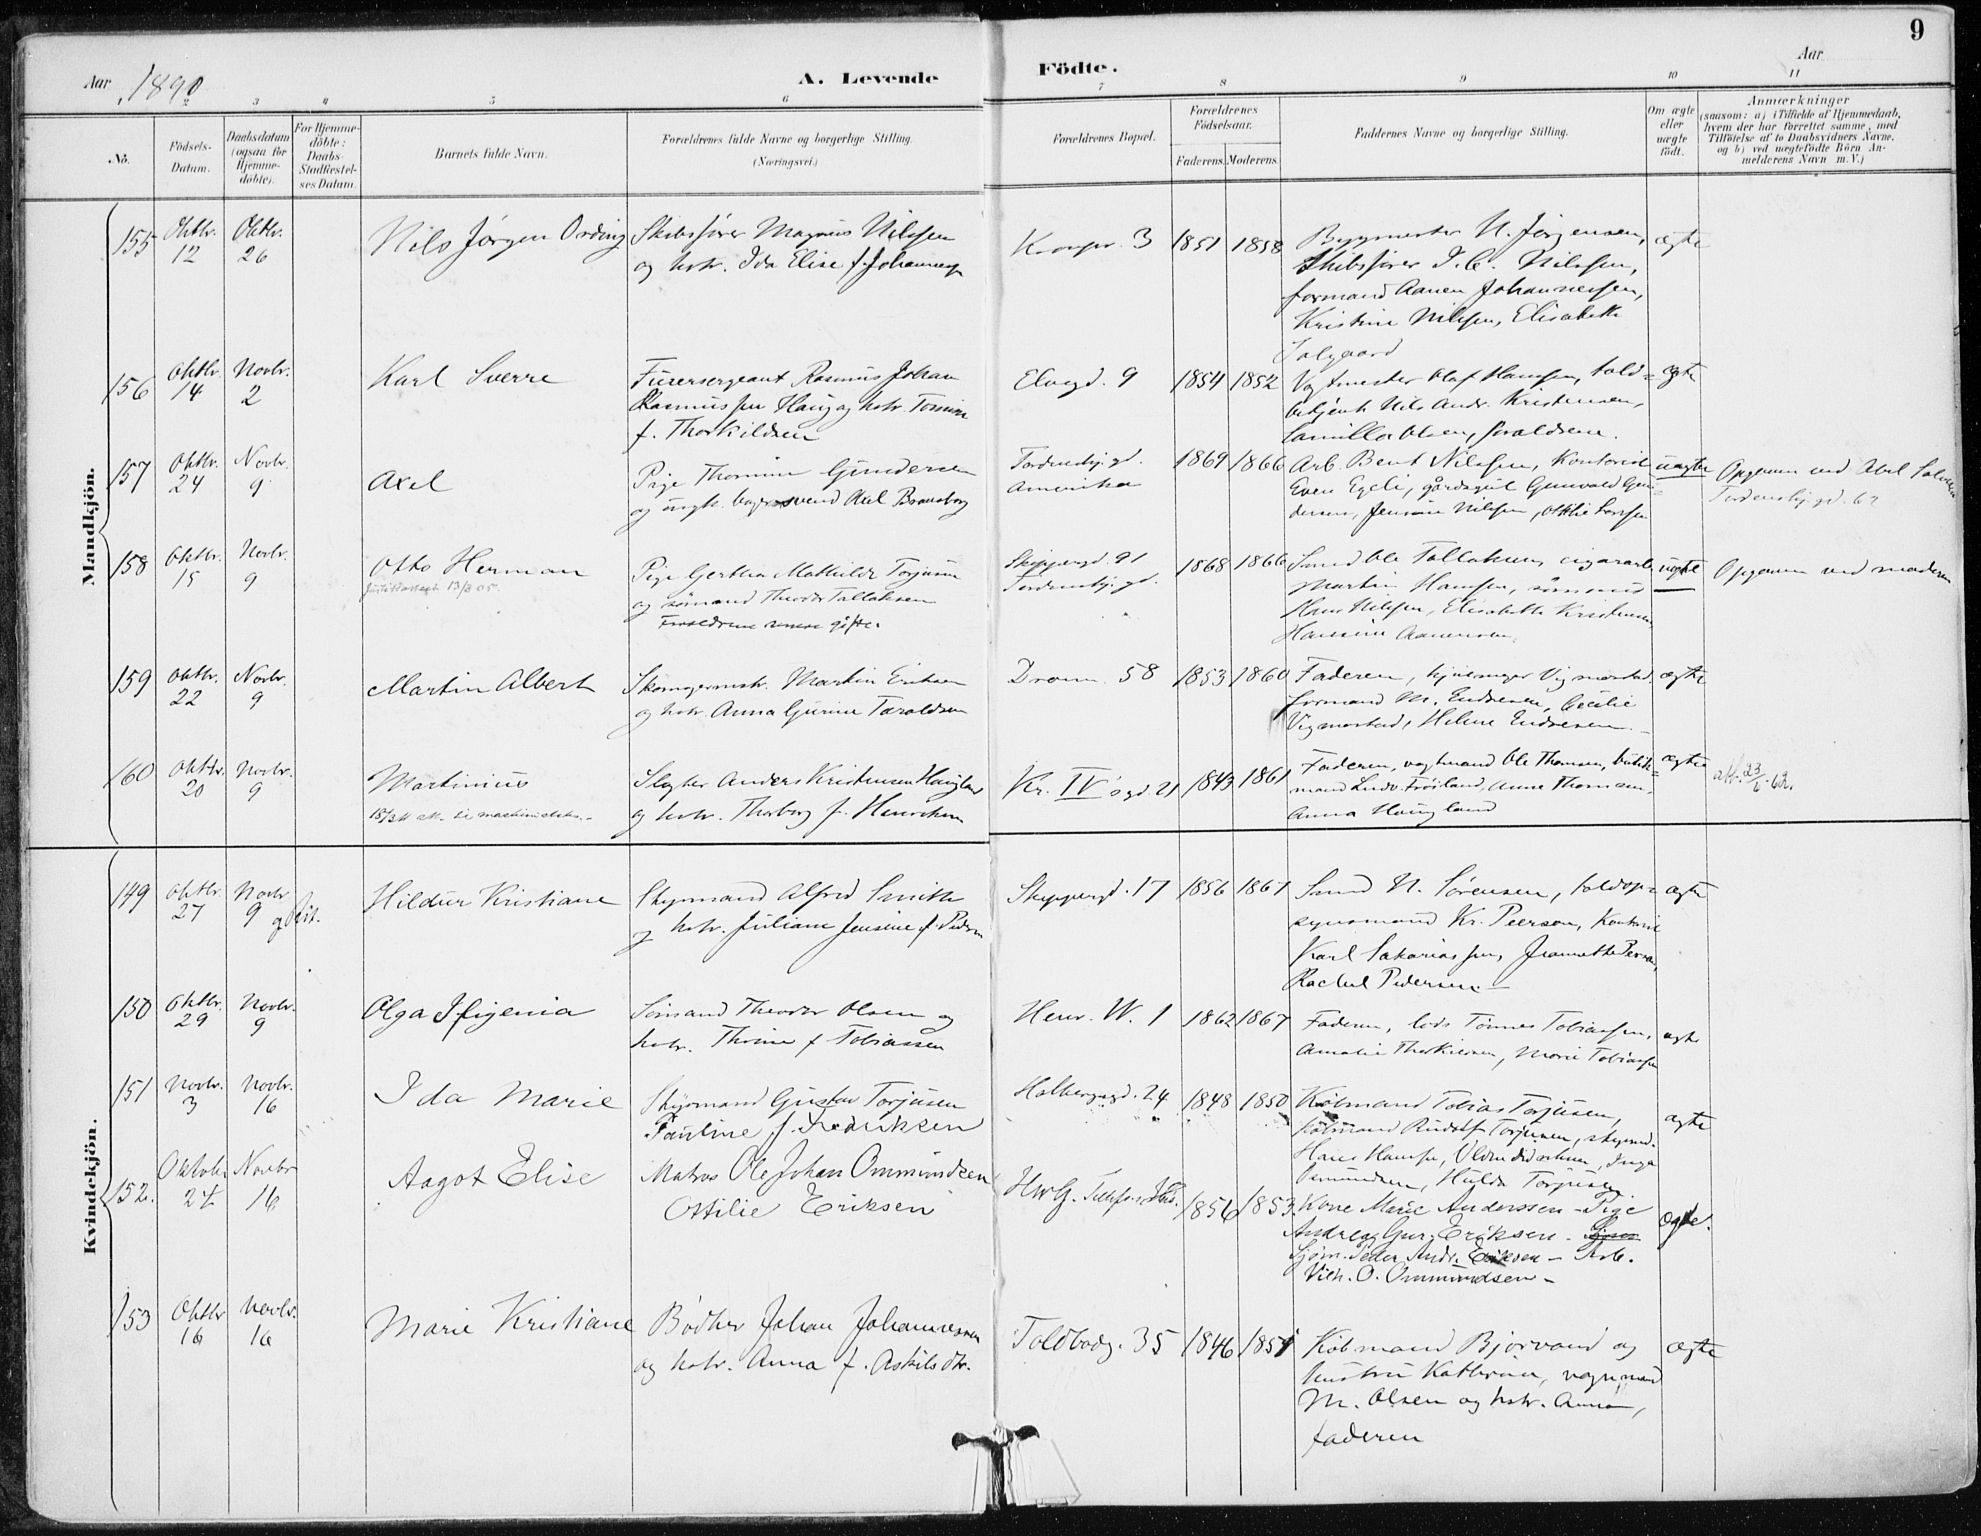 9
Aar 1890
A. Levende Födte.
Aar
2 3 4 5 6 7 8 9 10 11
No.
Födsels-Datum.
Daabsdatum (ogsaa for Hjemme-döbte).
For Hjemme-döbte: Daabs-Stadfæstel-ses Datum.
Barnets fulde Navn.
Forældrenes fulde Navne og borgerlige Stilling. (Næringsvei.)
Forældrenes Bopæl.
Forældrenes Födselsaar.
Faderens. Moderens.
Faddernes Navne og borgerlige Stilling.
Om ægte eller uægte födt.
Anmærkninger
(saasom: a) i Tilfælde af Hjemmedaab,
hvem der har forrettet samme, med
Tilföielse af to Daabsvidners Navne.
og b) ved uægtefödte Börn An-
melderens Navn m. V.)
Mandkjön.
155 Oktbr. 12 Oktbr. 26 Nils Jørgen Ording
Skibsfører Magnus Nilssen
og hstr. Ida Elise f. Johannesen
Kronpr. 3 1851 1858
Byggmester N. Jørgensen,
Skibsfører J. C. Nilssen,
formand Aanen Johannessen,
Kristine Nilssen, Elisabeth
Salgaard
ægte
156 Oktbr. 14 Novbr. 2 Karl Sverre
Furersergeant Rasmus Johan
Rasmussen Haug og hstr. Tomine
f. Thorkildsen
Elvegd. 9 1854 1852
Olaf Hansen, told-
betjent Nils Andr. Kristensen,
Camilla Olsen, forældrene.
ægte
157 Oktbr. 24 Novbr. 9 Axel
Pige Thomine Gundersen
og ungk. bagersvend Axel Bransborg
Tordenskj.gd.
Amerika
1869 1866
Arb. Bent Nilssen, Kontorist
Even Egeli, gårdsgut Gunvald Gun-
dersen, Jensine Nilssen, Othilie Larssen
uægte
Opgaven ved Abel
Tordenskj.gd. 62
158 Oktbr. 15 Novbr. 9 Otto Herman
13/3 05.
Pige Gertha Mathilde Torjusen
og sømand Theodor Tallaksen
Forældrene senere gifte.
Skippergd. 91
Tordenskj.gd.
1868 1866
Sømd Ole Tallaksen, cigararb.
Martin Hansen, sømand
Hans Nilssen, Elisabeth Kristensen,
Hansine Aanensen.
uægte
Opgaven ved moderen
159 Oktbr. 22 Novbr. 9 Martin Albert
Skomagermstr. Martin Eriksen
og hstr. Anna Gurine Taraldsen
Dronn. 58 1853 1860
Faderen, Vigmostad
formand M. Endresen, Cecilie
Vigmostad, Helene Endresen.
ægte
160 Oktbr. 20 Novbr. 9 Martinius
Slagter Anders Kristensen Haugland
og hstr. Thorborg f. Henriksen
Kr. IV's gd. 21 1843 1861
Faderen, vogtmand Ole Thomsen, butik-
mand Ludv. Frøiland, Anne Thomsen,
Anna Haugland
ægte
Kvindekjön.
149 Oktbr. 27 Novbr. 9 Hildur Kristiane
Styrmand Alfred Smith
og hstr. Juliane Jensine f. Pedersen
Skippergd. 17 1856 1861
Sømd N. Sørensen, toldop-
synsmand Kr. Peerson, Kontorist
Karl Sakariassen, Jeanette Peerson,
Rachel Pedersen
ægte
150 Oktbr. 29 Novbr. 9 Olga Ifigenia
Sømand Theodor Olsen og
hstr. Thrine f Tobiassen
Henr. W. 1 1862 1867
Faderen, lods Tønnes Tobiassen,
Amalie Thorkildsen, Marie Tobiassen
ægte
151 Novbr. 3 Novbr. 16 Ida Marie
Styrmand Gustav Torjusen
Pauline f. Fredriksen
Holbergsgd. 24 1848 1850
Købmand Tobias Torjusen,
købmand Rudolf Torjusen, styrmd.
Hans Hansen, Inga
Hulda Torjusen
ægte
152. Oktobr 24 Novbr 16 Aagot Elise
Matros Ole Johan Ommundsen
Ottilie Eriksen
1856 1853
Kone Marie Anderssen - Pige
Andrea Gur. Eriksen -
Sjøm. Peder Andr. Eriksen - Arb.
Vilh. O. Ommundsen -
ægte.
153 Oktbr 16 Novbr. 16 Marie Kristiane
Bødker Johan Johannessen
og hstr. Anna f. Askilsdtr.
Toldbodg. 35 1846 1851
Købmand Bjorvand og
hustru Kathrine, vognmand
M. Olsen og hstr. Anna,
faderen
ægte